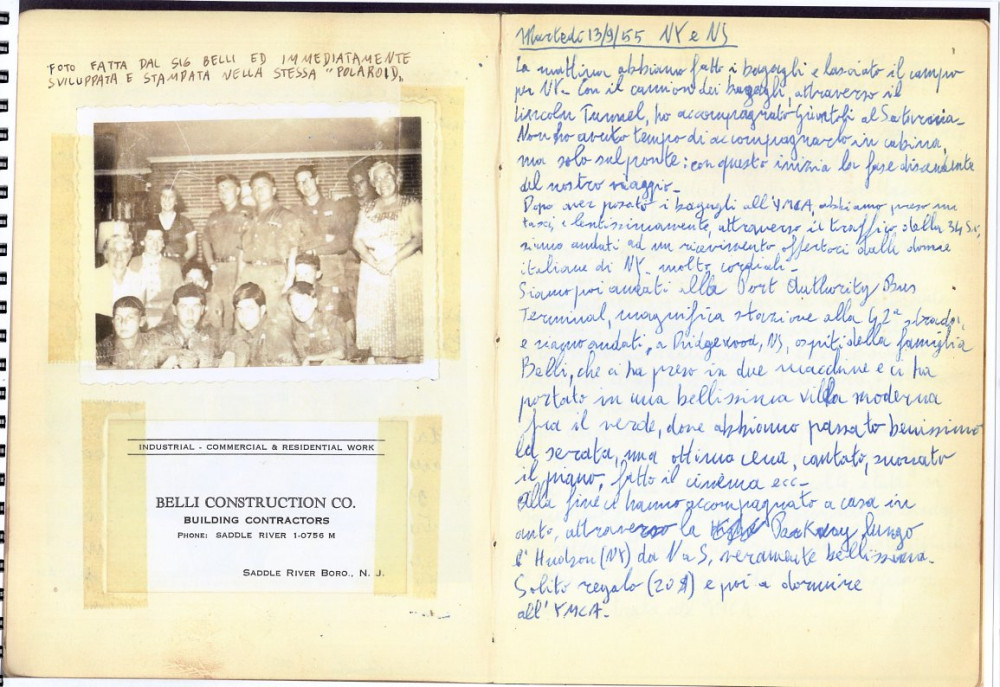 FOTO FATTA DAL SIG BELLI ED IMMEDIATAMENTE
SVILUPPATA E STAMPATA NELLA STESSA "POLAROID"
INDUSTRIAL - COMMERCIAL & RESIDENTIAL WORK
BELLI CONSTRUCTION CO.
BUILDING CONTRACTORS
PHONE: SADDLE RIVER 1-0756 M
SADDLE RIVER BORO., N. J.
Martedì 13/9/55 NY e NS
La mattina abbiamo fatto i bagagli e lasciato il campo
per NY - Con il camion dei bagagli, attraverso il
Lincoln Tunnel, ho accompagnato Giuntoli al Saturnia -
Non ho avuto tempo di accompagnarlo in cabina,
ma solo sul ponte: con questo inizia la fase discendente
del nostro viaggio -
Dopo aver posato i bagagli all'YMCA, abbiamo preso un
taxi, e lentissimamente, attraverso il traffico della 34 St,
siamo andati ad un ricevimento offertoci dalle donne
italiane di NY - molto cordiali -
Siamo poi andati alla Port Authority Bus
Terminal, magnifica stazione alla 42ª strada,
e siamo andati, a Ridgewood, NS, ospiti della famiglia
Belli, che ci ha preso in due macchine e ci ha
portato in una bellissima villa moderna
fra il verde, dove abbiamo passato benissimo
la serata, una ottima cena, cantato, suonato
il piano, fatto il cinema ecc -
Alla fine ci hanno accompagnato a casa in
auto, attraverso la Parkway lungo
l'Hudson (NY) da N a S, veramente bellissima.
Solito regalo (20$) e poi a dormire
all'YMCA -